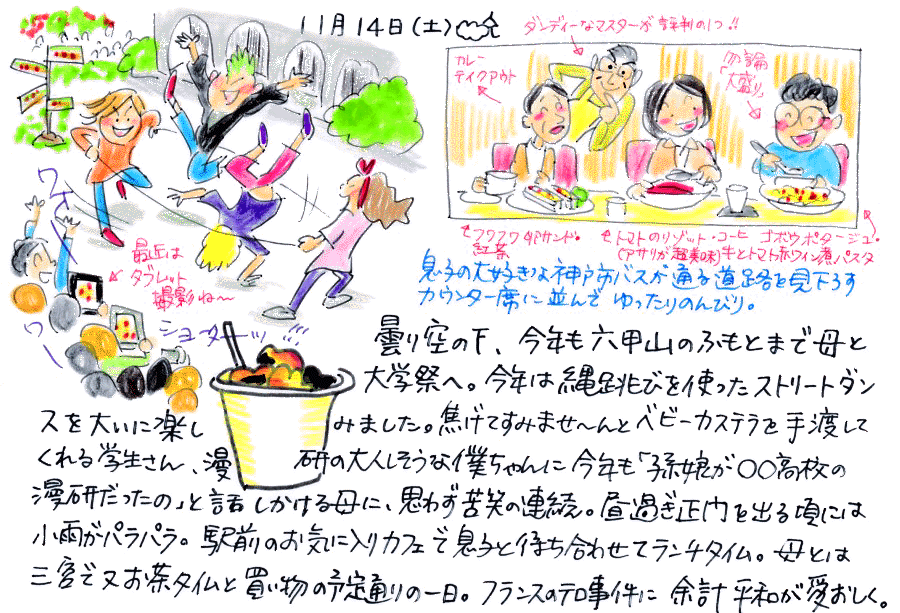 11月14日(土)
ダンディーなマスターが評判の1つ!!
カレー
テイクアウト
勿論
大盛り
ワー
ワー
最近は
タブレット
撮影ね〜
ショータッ!!!
フワフワ卵サンド・
紅茶
トマトのリゾット・コーヒー
(アサリが超美味)
ゴボウポタージュ・
牛とトマト赤ワイン煮パスタ
息子の大好きな神戸市バスが通る道路を見下ろす
カウンター席に並んで ゆったりのんびり。
曇り空の下、今年も六甲山のふもとまで母と
大学祭へ。今年は縄跳びを使ったストリートダン
スを大いに楽しみました。焦げてすみませ〜んとベビーカステラを手渡して
くれる学生さん、漫研の大人しそうな僕ちゃんに今年も「孫娘が〇〇高校の
漫研だったの」と話しかける母に、思わず苦笑の連続。昼過ぎ正門を出る頃には
小雨がパラパラ。駅前のお気に入りカフェで息子と待ち合わせてランチタイム。母とは
三宮で又お茶タイムと買い物の予定通りの一日。フランスのテロ事件に 余計平和が愛おしく。